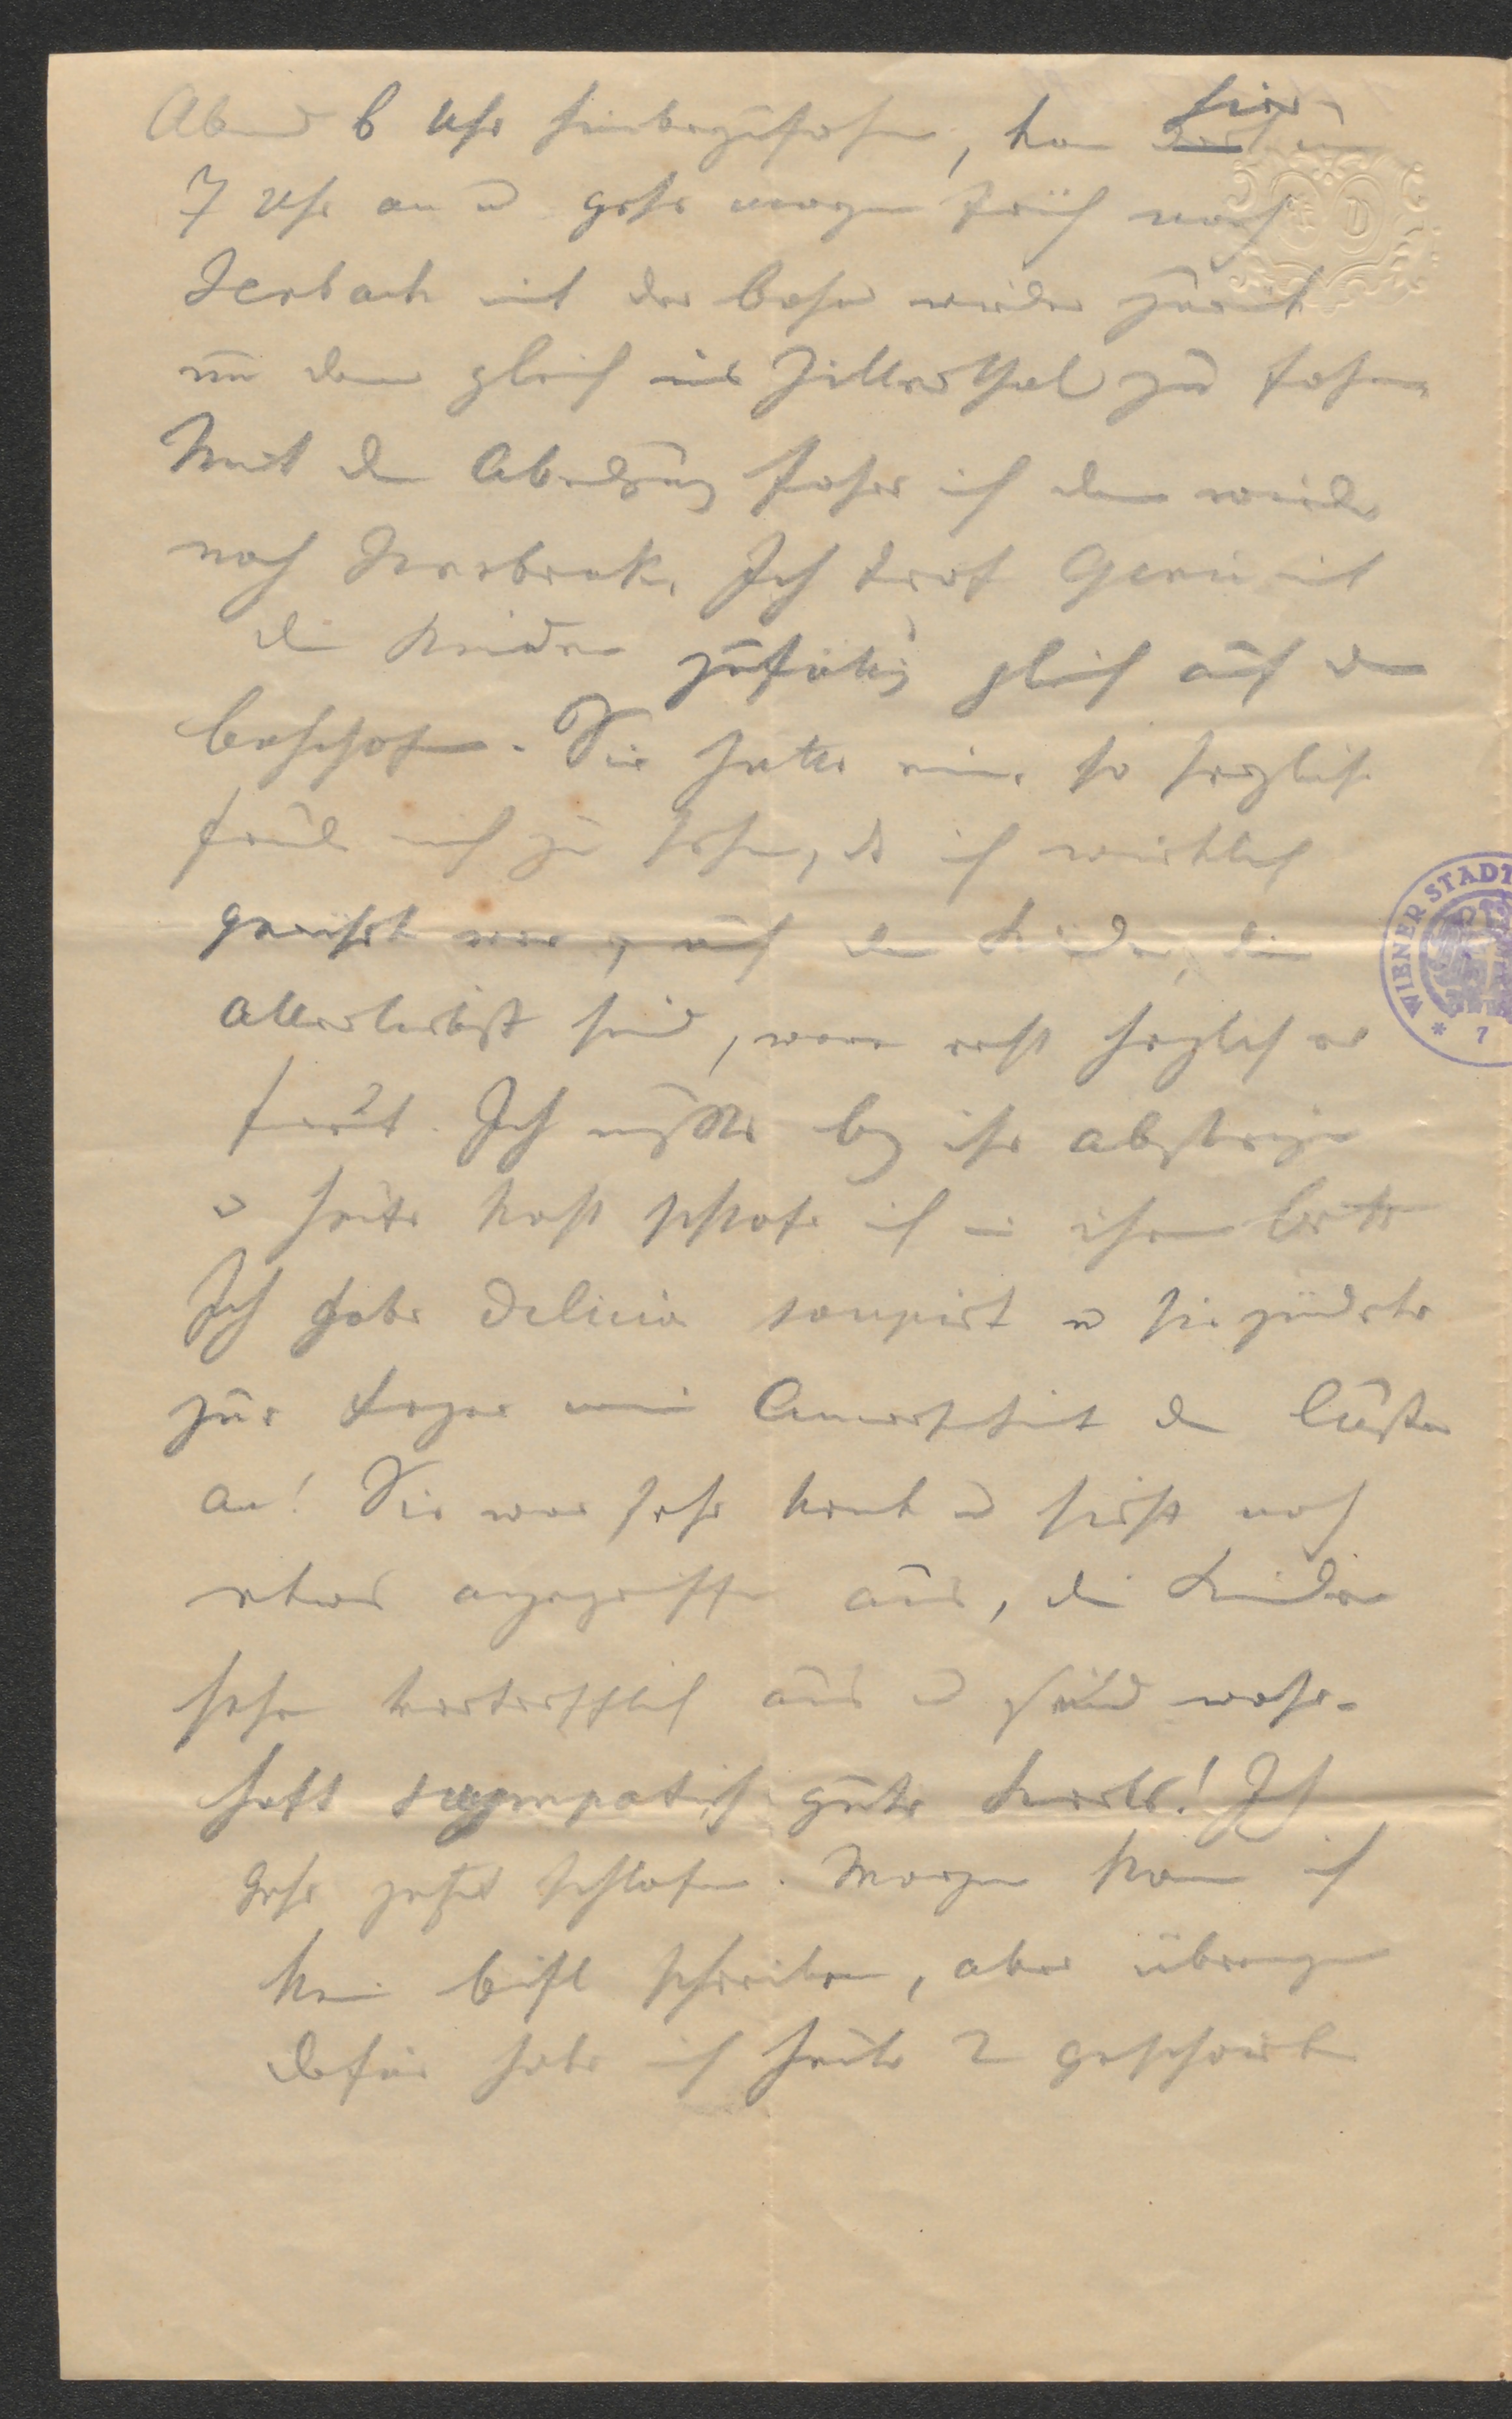 Abend 6 Uhr hinbegleiten, kam hier um
7 Uhr an u gehe morgen früh nach
Jenbach mit der Bahn wieder zurück
um dann gleich ins Zillerthal zu fahren
Mit dem Abendzug fahre ich dann wieder
nach Innsbruck. Ich traf Gerin mit
den Kindern zufällig gleich auf dem
Bahnhofe. Sie hatte eine so herzliche
Freude mich zu sehen, daß ich wirklich
gerührt war, auch die Kinder, die
allerliebst sind, waren recht herzlich er
freut. Ich mußte bey ihr absteigen
u heute Nacht schlafe ich in ihrem Bette
Ich habe deliciös soupirt u sie zündete
zur Feyer meiner Anwesenheit den Luster
an! Sie war sehr krank u sieht noch
etwas angegriffen aus, die Kinder
sehen vortrefflich aus u sind wahr-
haft sympatisch gute Kerle! Ich
gehe jetzt schlafen. Morgen kann ich
kein bissl schreiben, aber übermorgen
dafür habe ich heute 2 geschrieben
WIENER STADT
* 7